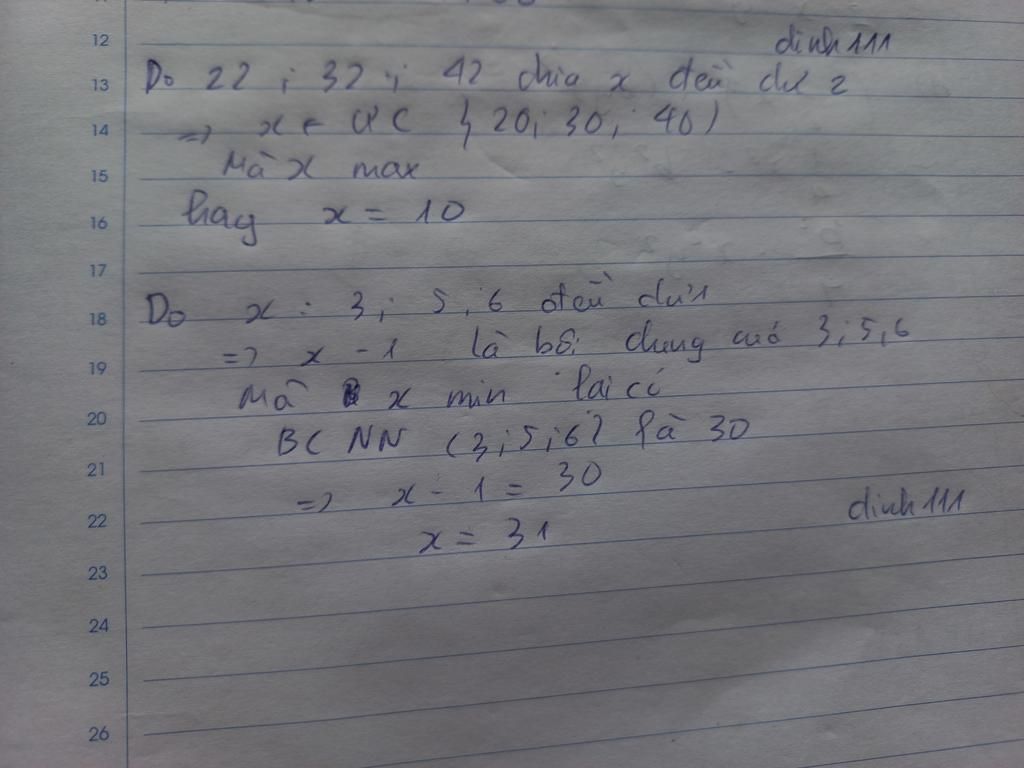 12
dinh 111
13
Do 22 ; 32 ; 42 chia x đều dư 2
14
=> x ∈ ƯC { 20; 30; 40)
15
Mà x max
16
hay x = 10
17
18
Do x : 3 ; 5, 6 đều dư 1
19
=> x - 1 là bội chung của 3 ; 5, 6
20
Mà x min lại có
21
BC NN (3 ; 5 ; 6) là 30
22
=> x - 1 = 30
dinh 111
x = 31
23
24
25
26